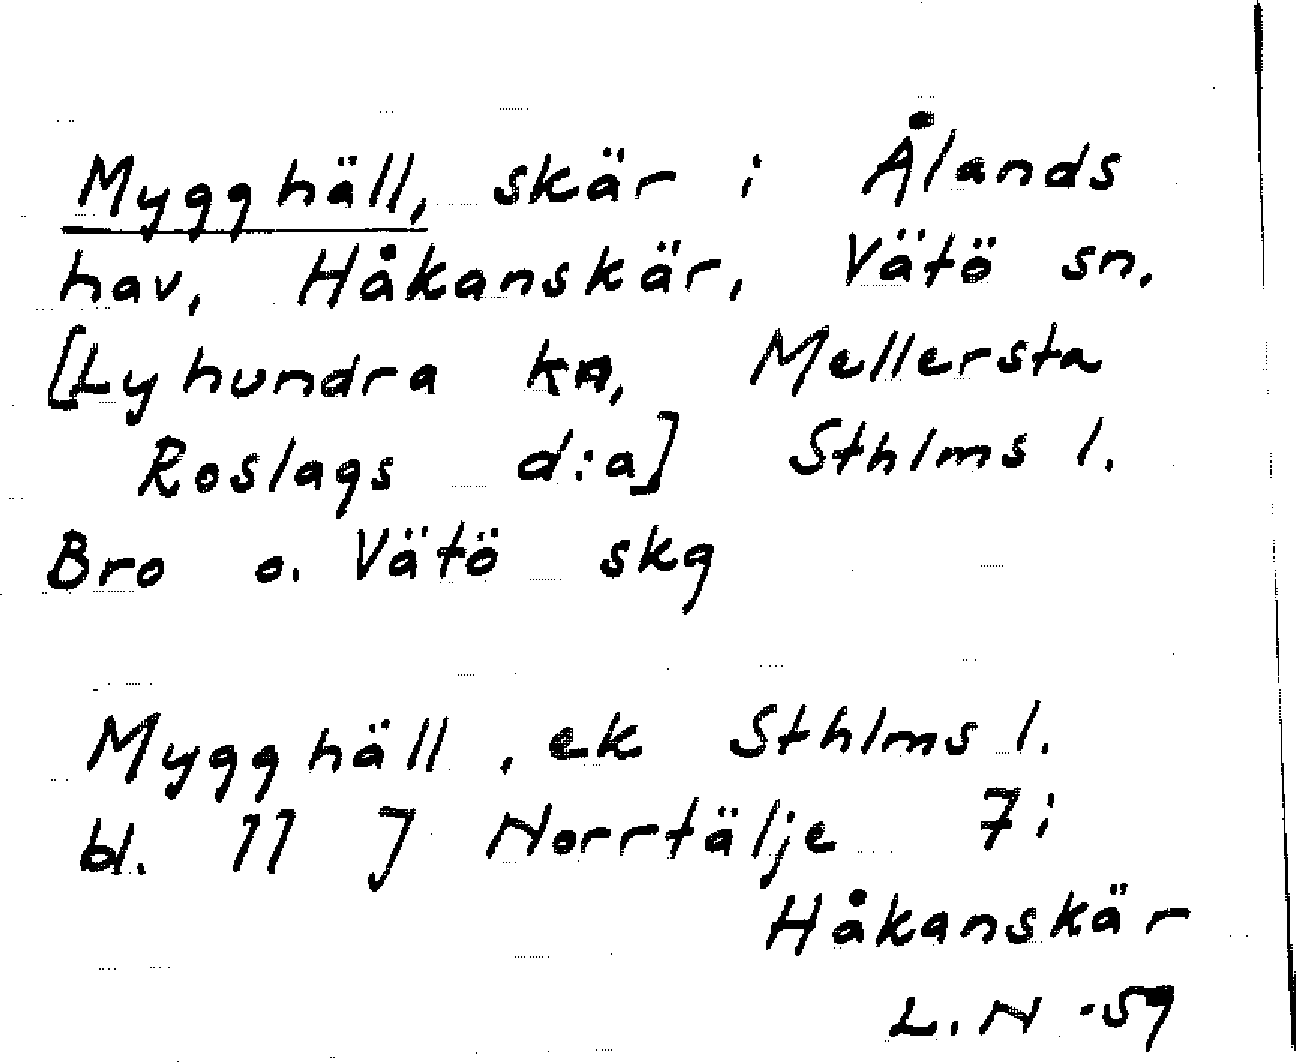 Mygghäll, skär i Ålands
hav, Håkanskär, Vätö sn.
[Lyhundra kA, Mellersta
Roslags d:a] Sthlms l.
Bro o. Vätö skg
Mygghäll, ek Sthlms l.
bl. 11 J Norrtälje 7i
Håkanskär
L.N -59